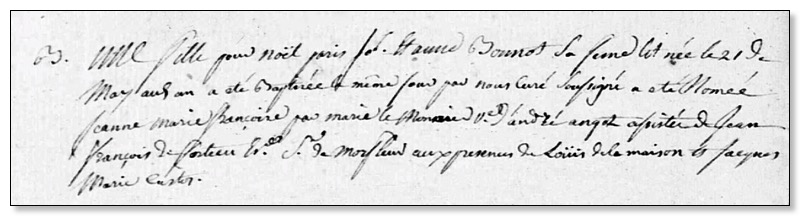 B. Une fille pour noël pris fo. & anne Bonnot sa feme lit née le 21 de
May audt an a eté Baptisée le même jour par nous curé soussigné a eté Nomeé
jeanne marie françoise par marie le Monnier Ve d'andré angot assistée de Jean
françois de Ec. Sr. de aux presences de Loüis de la maison et jacques
Marie